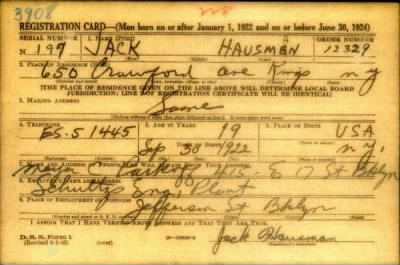 3908
228
REGISTRATION CARD—(Men born on or after January 1, 1922 and on or before June 30, 1924)
SERIAL NUMBER 1. NAME (Print) ORDER NUMBER
N 197 JACK HAUSMAN 12329
2. PLACE OF RESIDENCE (Print)
650 Crawford ave Kings n y
[THE PLACE OF RESIDENCE GIVEN ON THE LINE ABOVE WILL DETERMINE LOCAL BOARD
JURISDICTION; LINE 2 OF REGISTRATION CERTIFICATE WILL BE IDENTICAL]
3. MAILING ADDRESS
Same
4. TELEPHONE 5. AGE IN YEARS 6. PLACE OF BIRTH
ES. 5 1445 19 USA
DATE OF BIRTH
Sep 30 1922 n y.
7. NAME AND ADDRESS OF PERSON WHO WILL ALWAYS KNOW YOUR ADDRESS
E 17 St Bklyn
8. EMPLOYER'S NAME AND ADDRESS
Schultz Eng. Plant
9. PLACE OF EMPLOYMENT OR BUSINESS
Jefferson St Bklyn
I AFFIRM THAT I HAVE VERIFIED ABOVE ANSWERS AND THAT THEY ARE TRUE.
D. S. S. Form 1
(Revised 6-1-42)
Jack Hausman